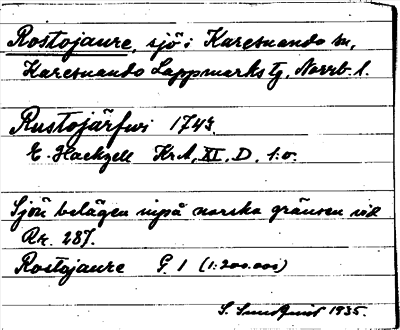 Rostojaure, sjö i Karesuando sn,
Karesuando Lappmarks tg, Norrb. l.
Rustojärfwi 1743.
E. Hackzell KrA, XI, D, 1:o.
Sjön belägen inpå norska gränsen vid
Rr. 287.
Rostojaure G. 1 (1:200.000)
S. Sundquist 1935.